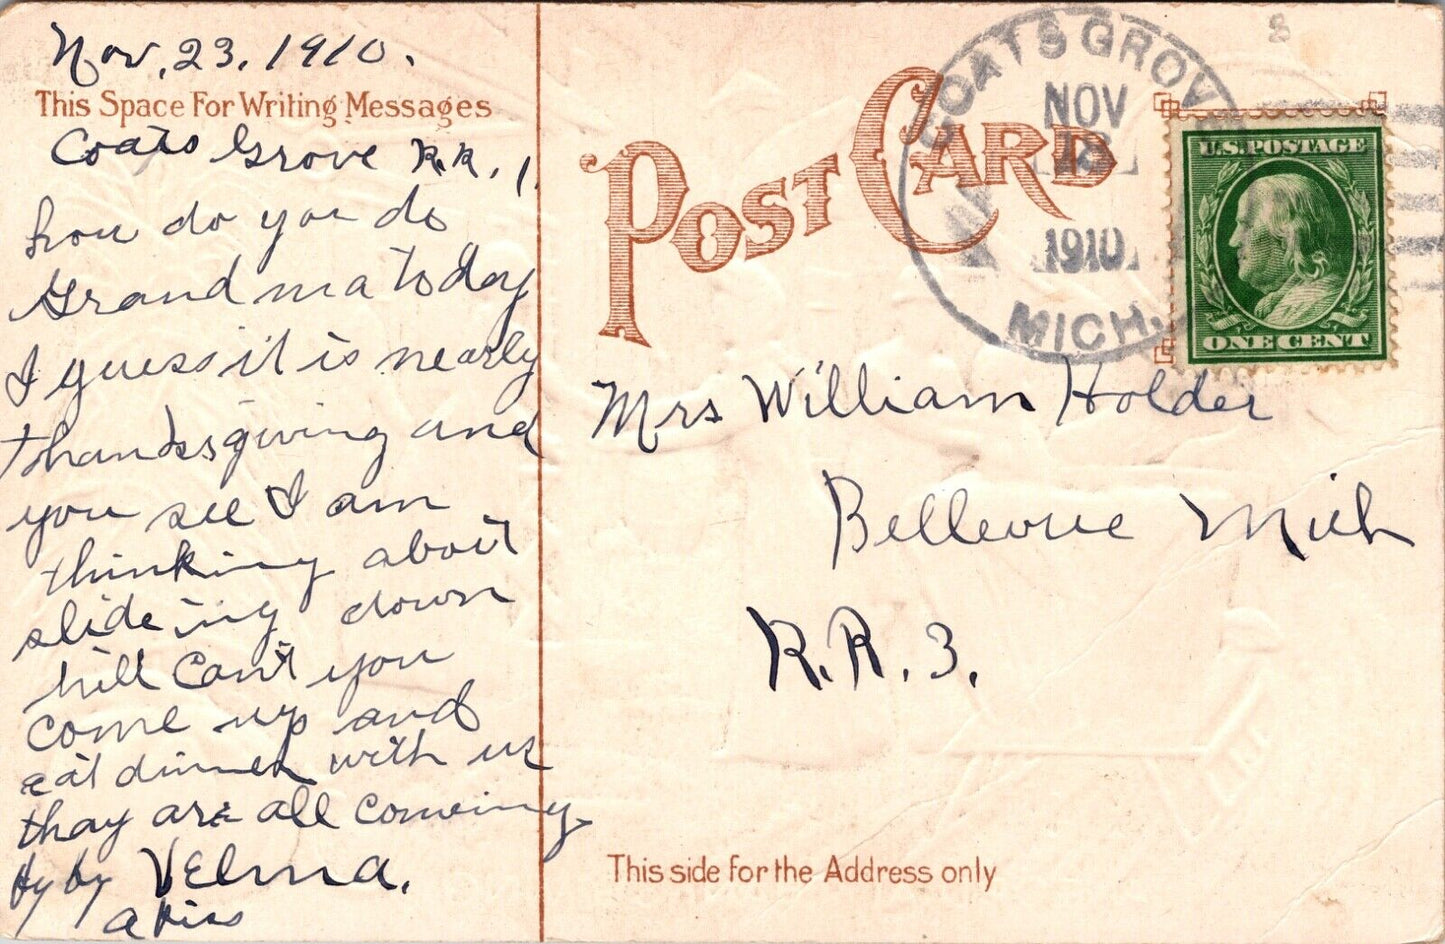 Nov. 23. 1910.
This Space For Writing Messages
Coats Grove R.R. 1.
how do you do
Grandma to day
I guess it is nearly
thanksgiving and
you see I am
thinking about
slideing down
hill Can't you
come up and
eat dinner with us
thay are all comeing
by by Velma.
a kiss
POST CARD
COATS GROVE
NOV
23
1910
MICH.
U.S. POSTAGE
ONE CENT
Mrs William Holder
Bellevue Mich
R.R. 3.
This side for the Address only